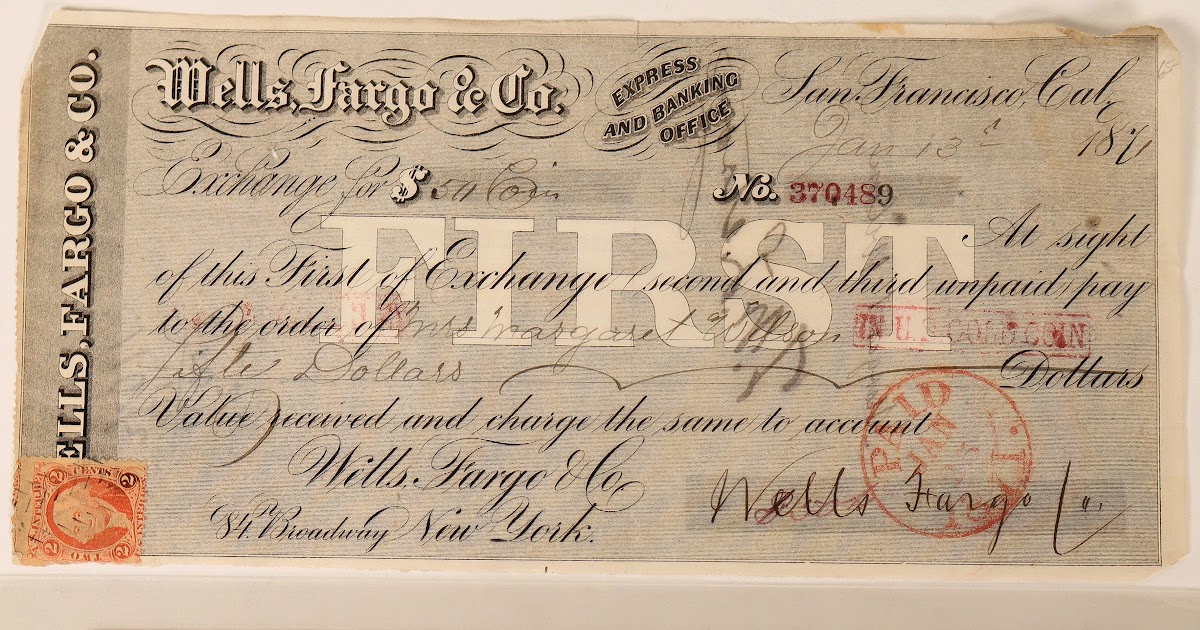 WELLS, FARGO & CO.
Wells, Fargo & Co.
EXPRESS
AND BANKING
OFFICE
San Francisco, Cal.
Jan 13th 1871
Exchange for $ 50 Coin
No. 370489
FIRST
At sight
of this First of Exchange (second and third unpaid) pay
to the order of Mrs Margaret
IN U.S. GOLD COIN
Dollars
Dollars
Value received and charge the same to account
Wells, Fargo & Co
84 Broadway New York.
Wells Fargo Co.
PAID
JAN
2 CENTS 2
2 TWO 2